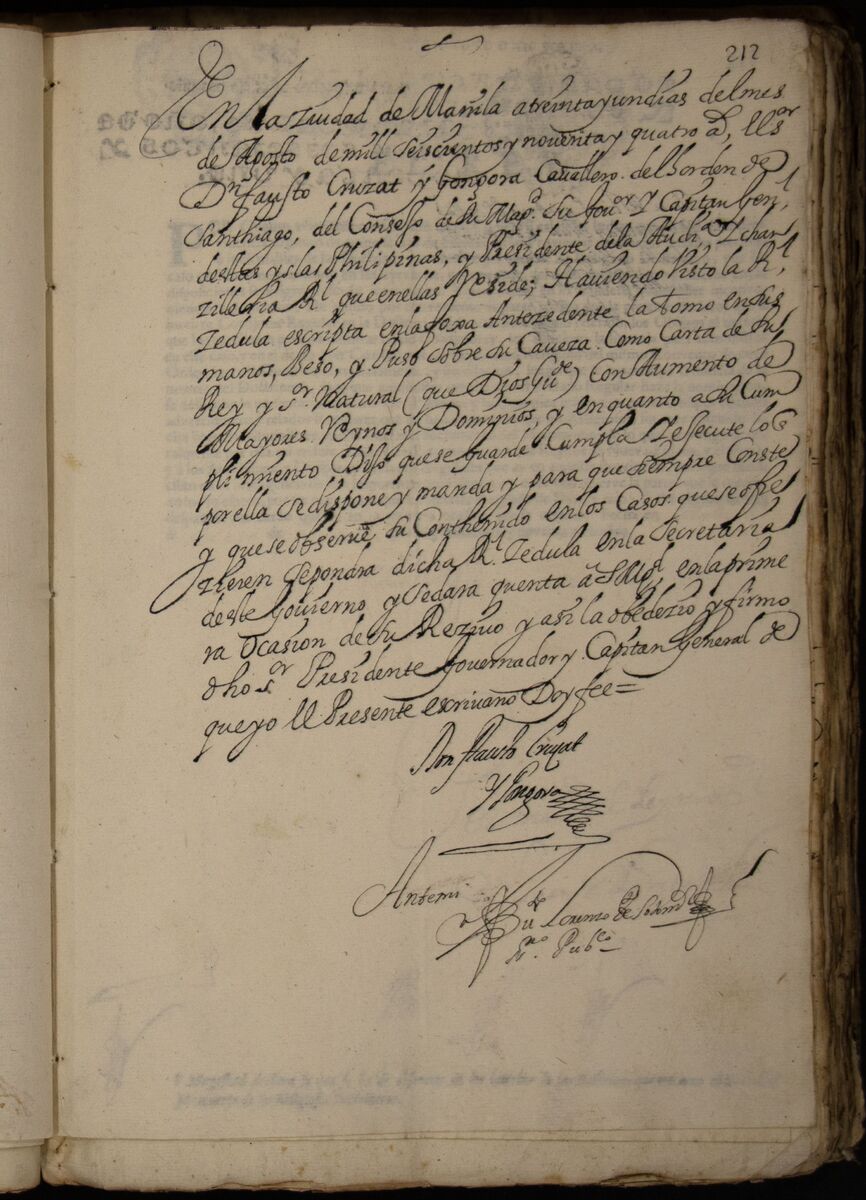 212
En la Ziudad de Manila a treinta y un dias del mes
de Agosto de mill seiscientos y noventa y quatro as, El Sor
Dn fausto Cruzat y Gongora Cavallero del horden de
Santhiago, del Consejo de Su Magd. Su Gour. Y Capitan Genl
destas yslas Philipinas, y Presidente de la Auda. Y chan
zilleria Rl que en ellas Reside; Haviendo Visto la Rl
Zedula escripta en la foxa Antezedente la tomo en sus
manos, Beso, y Puso Sobre Su Caveza Como Carta de Su
Rey y Sor Natural (que Dios Gude) Con Aumento de
Mayores Reynos y Dominios, y en quanto a Su Cum
plimiento Dijo que se guarde Cumpla Y esecute lo q
por ella se dispone y manda y para que siempre Conste
y que se observe su Conthenido en los Casos que se ofre
zieren Se pondra dicha Rl Zedula en la Secretaria
deste Govierno y se dara quenta a S Magd en la prime
ra Ocasion de Su Rezivo y asi la obedezio y firmo
dho Sor Presidente Governador y Capitan General de
que yo El Presente escrivano Doy fee=
Don fausto Cruzat
Y Gongora
Antemi
Lorenzo
Sno. Pubco